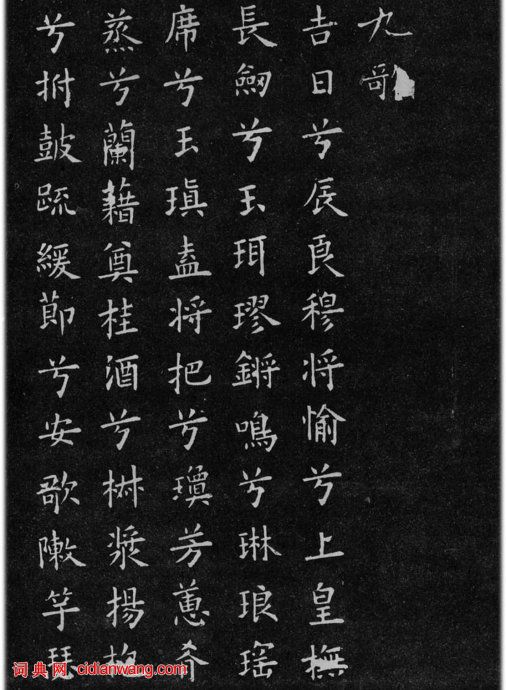 九歌
吉日兮辰良穆将愉兮上皇撫
長劒兮玉珥璆鏘鳴兮琳琅瑤
席兮玉瑱盍将把兮瓊芳蕙肴
蒸兮蘭藉奠桂酒兮椒漿揚枹
兮拊鼓疏緩節兮安歌敶竽瑟
词典网 cidianwang.com